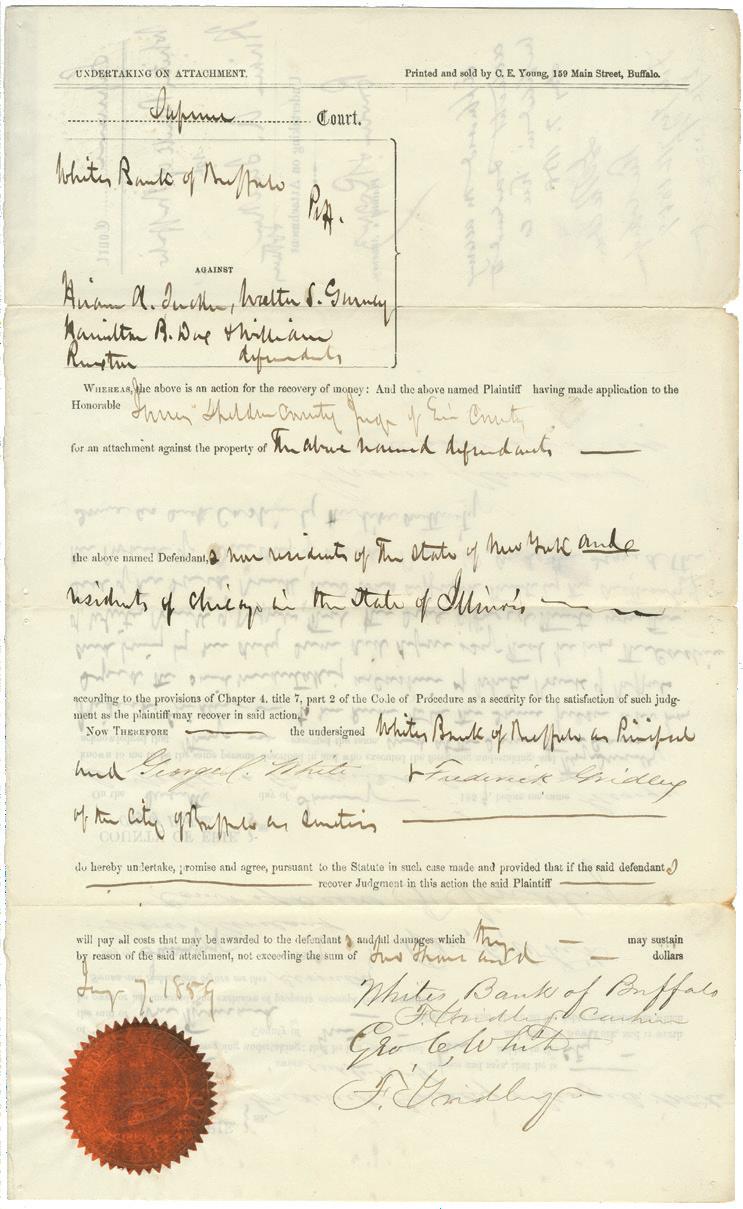 UNDERTAKING ON ATTACHMENT. Printed and sold by C. E. Young, 159 Main Street, Buffalo.
Supreme Court.
Whites Bank of Buffalo
Plff.
AGAINST
Hiram A. Tucker, Walter S. Gurney
Hamilton B. Dox & William
defendants
WHEREAS, the above is an action for the recovery of money: And the above named Plaintiff having made application to the
Honorable James Sheldon County Judge of Erie County
for an attachment against the property of The above named defendants
the above named Defendant, s non residents of the State of New York and
residents of Chicago in the State of Illinois
according to the provisions of Chapter 4, title 7, part 2 of the Code of Procedure as a security for the satisfaction of such judg-
ment as the plaintiff may recover in said action,
NOW THEREFORE the undersigned Whites Bank of Buffalo as Principal
and George C. White & Frederick Gridley
of the City of Buffalo as Sureties
do hereby undertake, promise and agree, pursuant to the Statute in such case made and provided that if the said defendant s
recover Judgment in this action the said Plaintiff
will pay all costs that may be awarded to the defendant s and all damages which they may sustain
by reason of the said attachment, not exceeding the sum of Two Thousand dollars
7, 1859
Whites Bank of Buffalo
F. Gridley Cashier
Geo C. White
F. Gridley